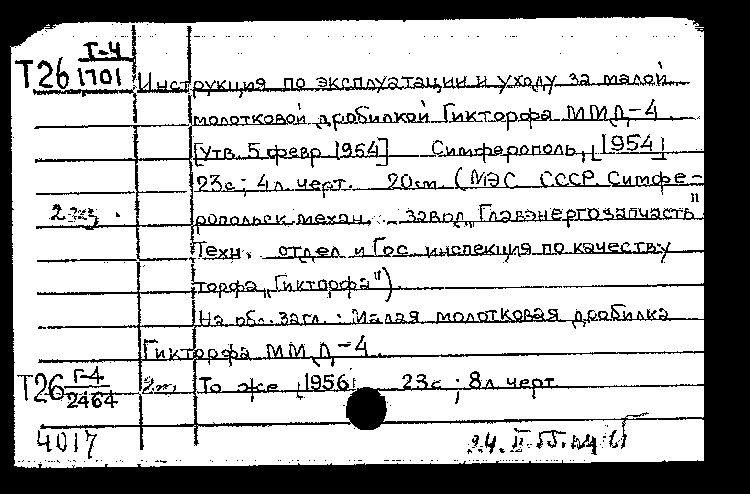 Т26 Г-4/1701 Инструкция по эксплуатации и уходу за малой
молотковой дробилкой Гикторфа ММД-4.
[Утв. 5 февр 1954] Симферополь, [1954]
23с; 4л. черт. 20см. (МЭС СССР. Симфе-
2 экз. ропольск. механ. завод „Главэнергозапчасть"
Техн. отдел и Гос. инспекция по качеству
торфа „Гикторфа").
На обл. загл.: Малая молотковая дробилка
Гикторфа ММД-4.
Т26 Г-4/2464 То же [1956] 23с; 8л. черт
4017